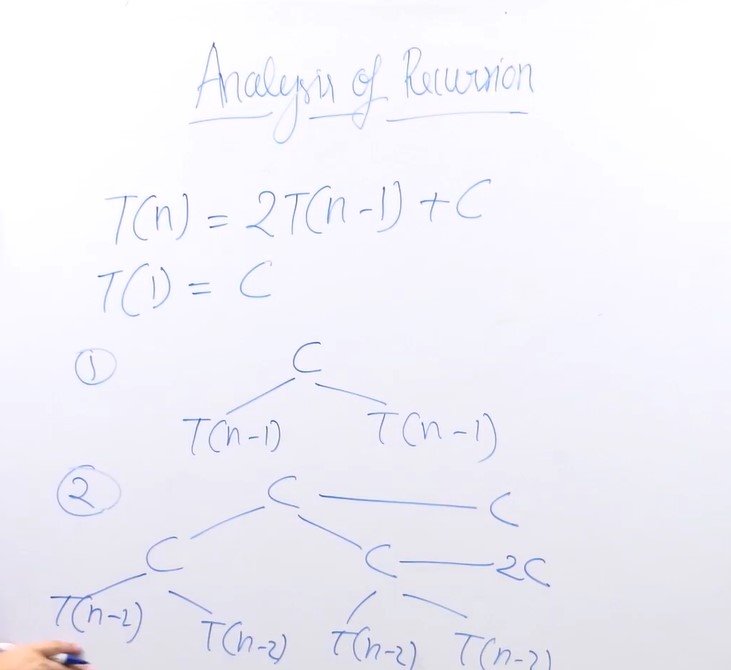 Analysis of Recursion
T(n) = 2T(n-1) + C
T(1) = C
1
C
T(n-1) T(n-1)
2
C C
C C 2C
T(n-2) T(n-2) T(n-2) T(n-2)